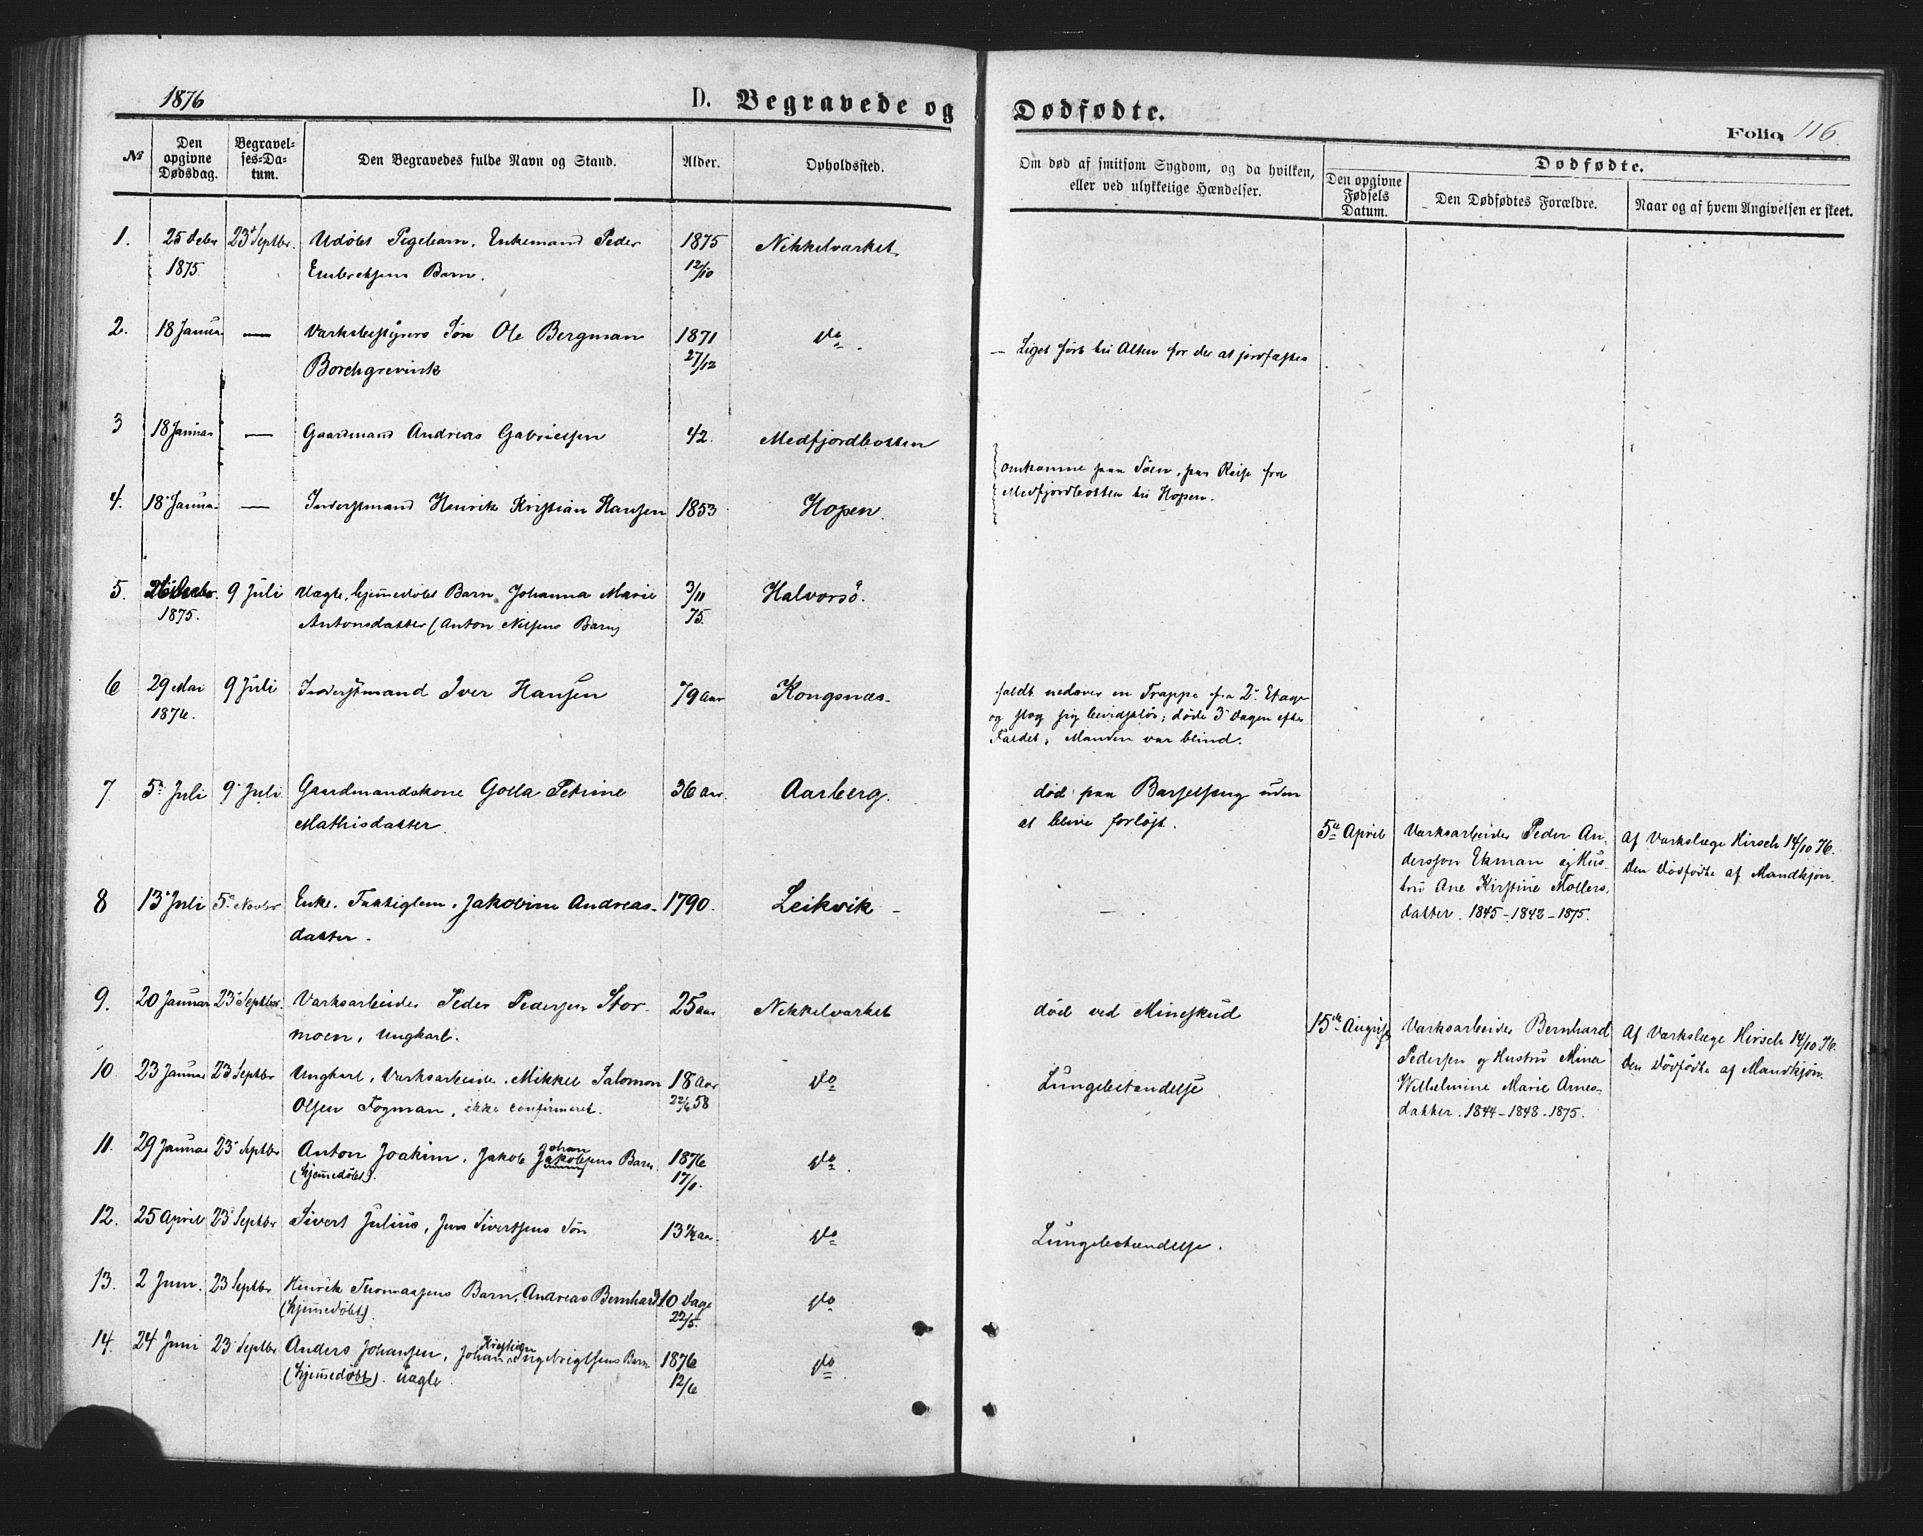 1876
D. Begravede og
Dødfødte.
Folio 116.
№
Den opgivne Dødsdag.
Begravel-
ses-Da-
tum.
Den Begravedes fulde Navn og Stand.
Alder.
Opholdssted.
Om død af smitsom Sygdom, og da hvilken,
eller ved ulykkelige Hændelser.
Dødfødte.
Den opgivne
Fødsels
Datum.
Den Dødfødtes Forældre.
Naar og af hvem Angivelsen er skeet.
1. 25 Decbr 23de Septbr. Udøbt Pigebarn, Enkemand Peder 1875 Nikkelværket
1875. Embrektsens Barn. 12/10
2. 18 Januar — Værksbestyrers Søn Ole Bergman 1871 Do
Borchgrevink 27/12
— Liget ført til Alten for der at jordfæstes
3 18 Januar — Gaardmand Andreas Gabrielsen 42. Medfjordbotten
omkomne paa Søen, paa Reise fra
Medfjordbotten til Hopen.
4. 18 Januar — Inderstmand Henrik Kristian Hansen 1853 Hopen.
5. 9 Juli Uægte, hjemmedøbt Barn, Johanna Marie 3/11 Halvorsö.
1875. Antonsdatter (Anton Nilsens Barn) 75.
6 29 Mai 9 Juli Inderstmand Iver Hansen 79 aar Kongsnæs.
1876.
faldt nedover en Trappe fra 2. Etage
og slog sig bevidstløs; døde 3 Dagen efter
Faldet; Manden var blind.
7 5te Juli 9 Juli Gaardmandskone Golla Petrine 36 Aar. Aarberg.
Mathisdatter.
død paa Barselseng uden
at blive forløst.
5te April
Værksarbeider Peder An-
dersson Ekman og Hus-
tru Ane Kirstine Mollers-
datter. 1845 - 1842 - 1875.
Af Værkslæge Hirsch 14/10 76.
Den Dødfødte af Mandkjøn.
8 13de Juli 5te Novbr Enke, Fattiglem, Jakobine Andreas- 1790. Leikvik —
datter.
9. 20 Januar 23de Septbr. Værksarbeider Peder Pedersen Stor- 25 aar Nikkelværket
moen, Ungkarl.
død ved Mineskud
15de August
Værksarbeider Bernhard
Pedersen og Hustru Mina
Wilhelmine Marie Arnes-
datter. 1844 - 1848 - 1875.
Af Værkslæge Hirsch 14/10 76.
Den Dødfødte af Mandkjøn.
10 23 Januar 23 Septbr Ungkarl, Værksarbeider, Mikkel Salomon 18 Aar Do
Olsen Fogman, ikke confirmeret. 22/6 58
Lungebetændelse
11. 29 Januar 23 Septbr Anton Joakim, Jakob Johan Jakobsens Barn. 1876 Do.
(hjemmedøbt). 17/1.
12. 25 April 23 Septbr Sivert Julius, Jens Sivertsens Søn 13 ½ Aar. Do
Lungebetændelse.
13. 2 Juni. 23 Septbr Henrik Thomassens Barn, Andreas Bernhard 10 Dage Do
(hjemmedøbt). 22/5.
14. 24 Juni 23 Septbr Anders Johansen, Johan Kristian Ingebrigtsens Barn 1876 Do
(hjemmedøbt). Uægte. 12/6